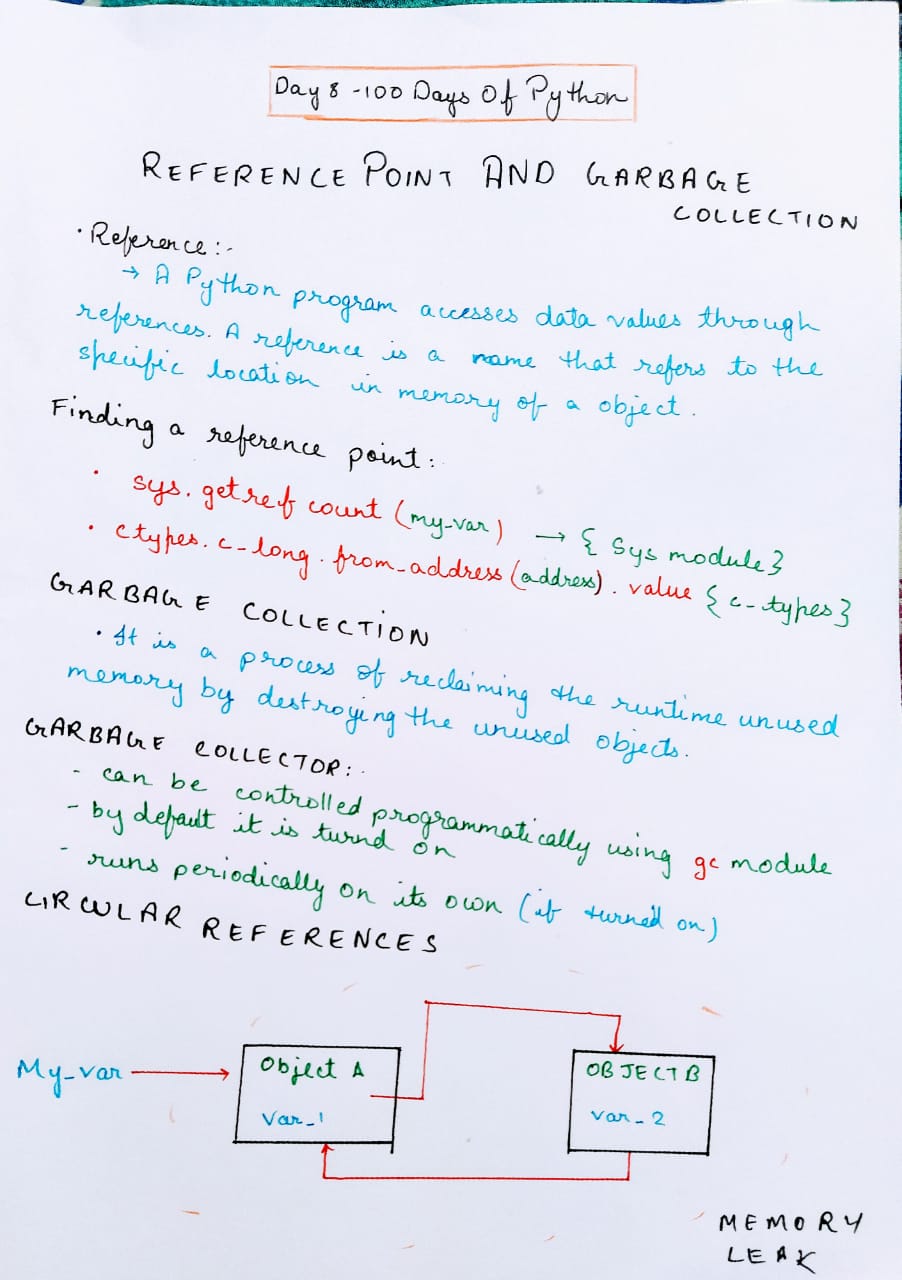 Day 8 -100 Days Of Python
REFERENCE POINT AND GARBAGE
COLLECTION
• Reference :-
→ A Python program accesses data values through
references. A reference is a name that refers to the
specific location in memory of a object.
Finding a reference point:
• sys.getref count (my-var) → { Sys module}
• ctypes.c-long.from_address (address).value { c-types}
GARBAGE COLLECTION
• It is a process of reclaiming the runtime unused
memory by destroying the unused objects.
GARBAGE COLLECTOR:
- can be controlled programmatically using gc module
- by default it is turnd on
- runs periodically on its own (if turned on)
CIRCULAR REFERENCES
My_var
Object A
Var_1
OBJECT B
var_2
MEMORY
LEAK